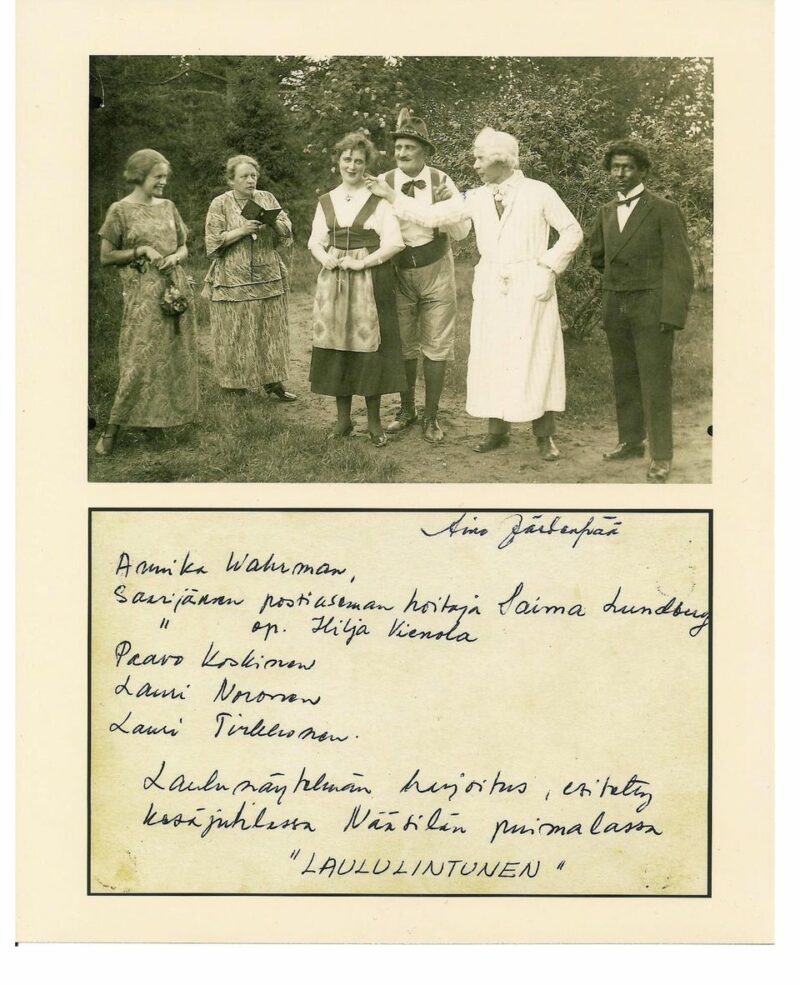 Aino Järvenpää
Annika Wahrman,
Saarijärven postiaseman hoitaja Saima Lundberg
" op. Hilja Vienola
Paavo Koskinen
Lauri Noronen
Lauri Tirkkonen.
Laulunäytelmän harjoitus, esitetty
kesäjuhlassa Nääsilän puimalassa
"LAULULINTUNEN"